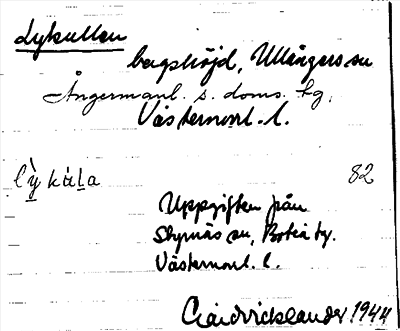 Lykullen
bergshöjd, Ullångers sn
Ångermanl. s. doms. hg,
Västernorrl. l.
lỳkúl̲a 82
Uppgiften från
Styrnäs sn, Boteå tg.
Västernorrl. l.
1944